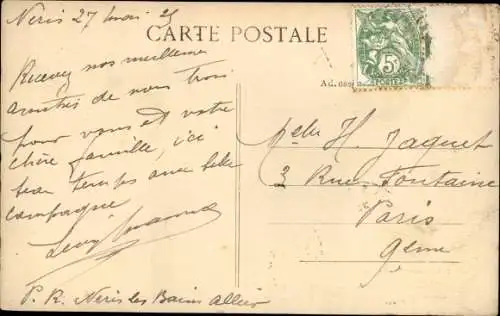 Néris 27 mai 25
CARTE POSTALE
Recevez nos meilleures
amitiés de nous trois
pour vous et votre
chère famille, ici
beau temps aux belle
campagne
Levy
P. R. Néris les Bains Allier
5c
POSTES
Ad.
Melle H. Jaquet
3 Rue Fontaine
Paris
9ème